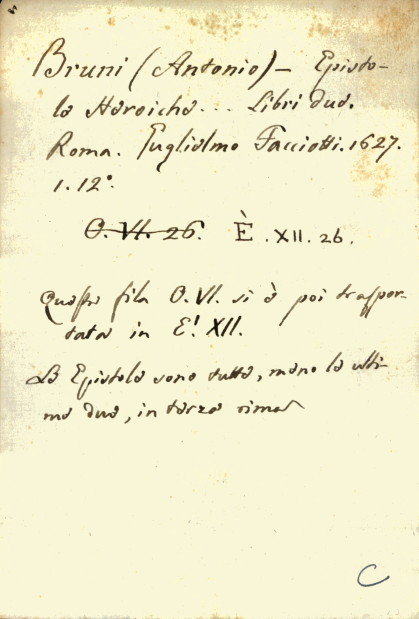 Bruni (Antonio) – Episto-
le Heroiche... Libri due.
Roma. Guglielmo Facciotti. 1627.
1. 12°.
O. VI. 26. È. XII. 26.
Questa fila O. VI. si è poi traspor-
tata in E'. XII.
Le Epistole sono tutte, meno le ulti-
me due, in terza rima
C